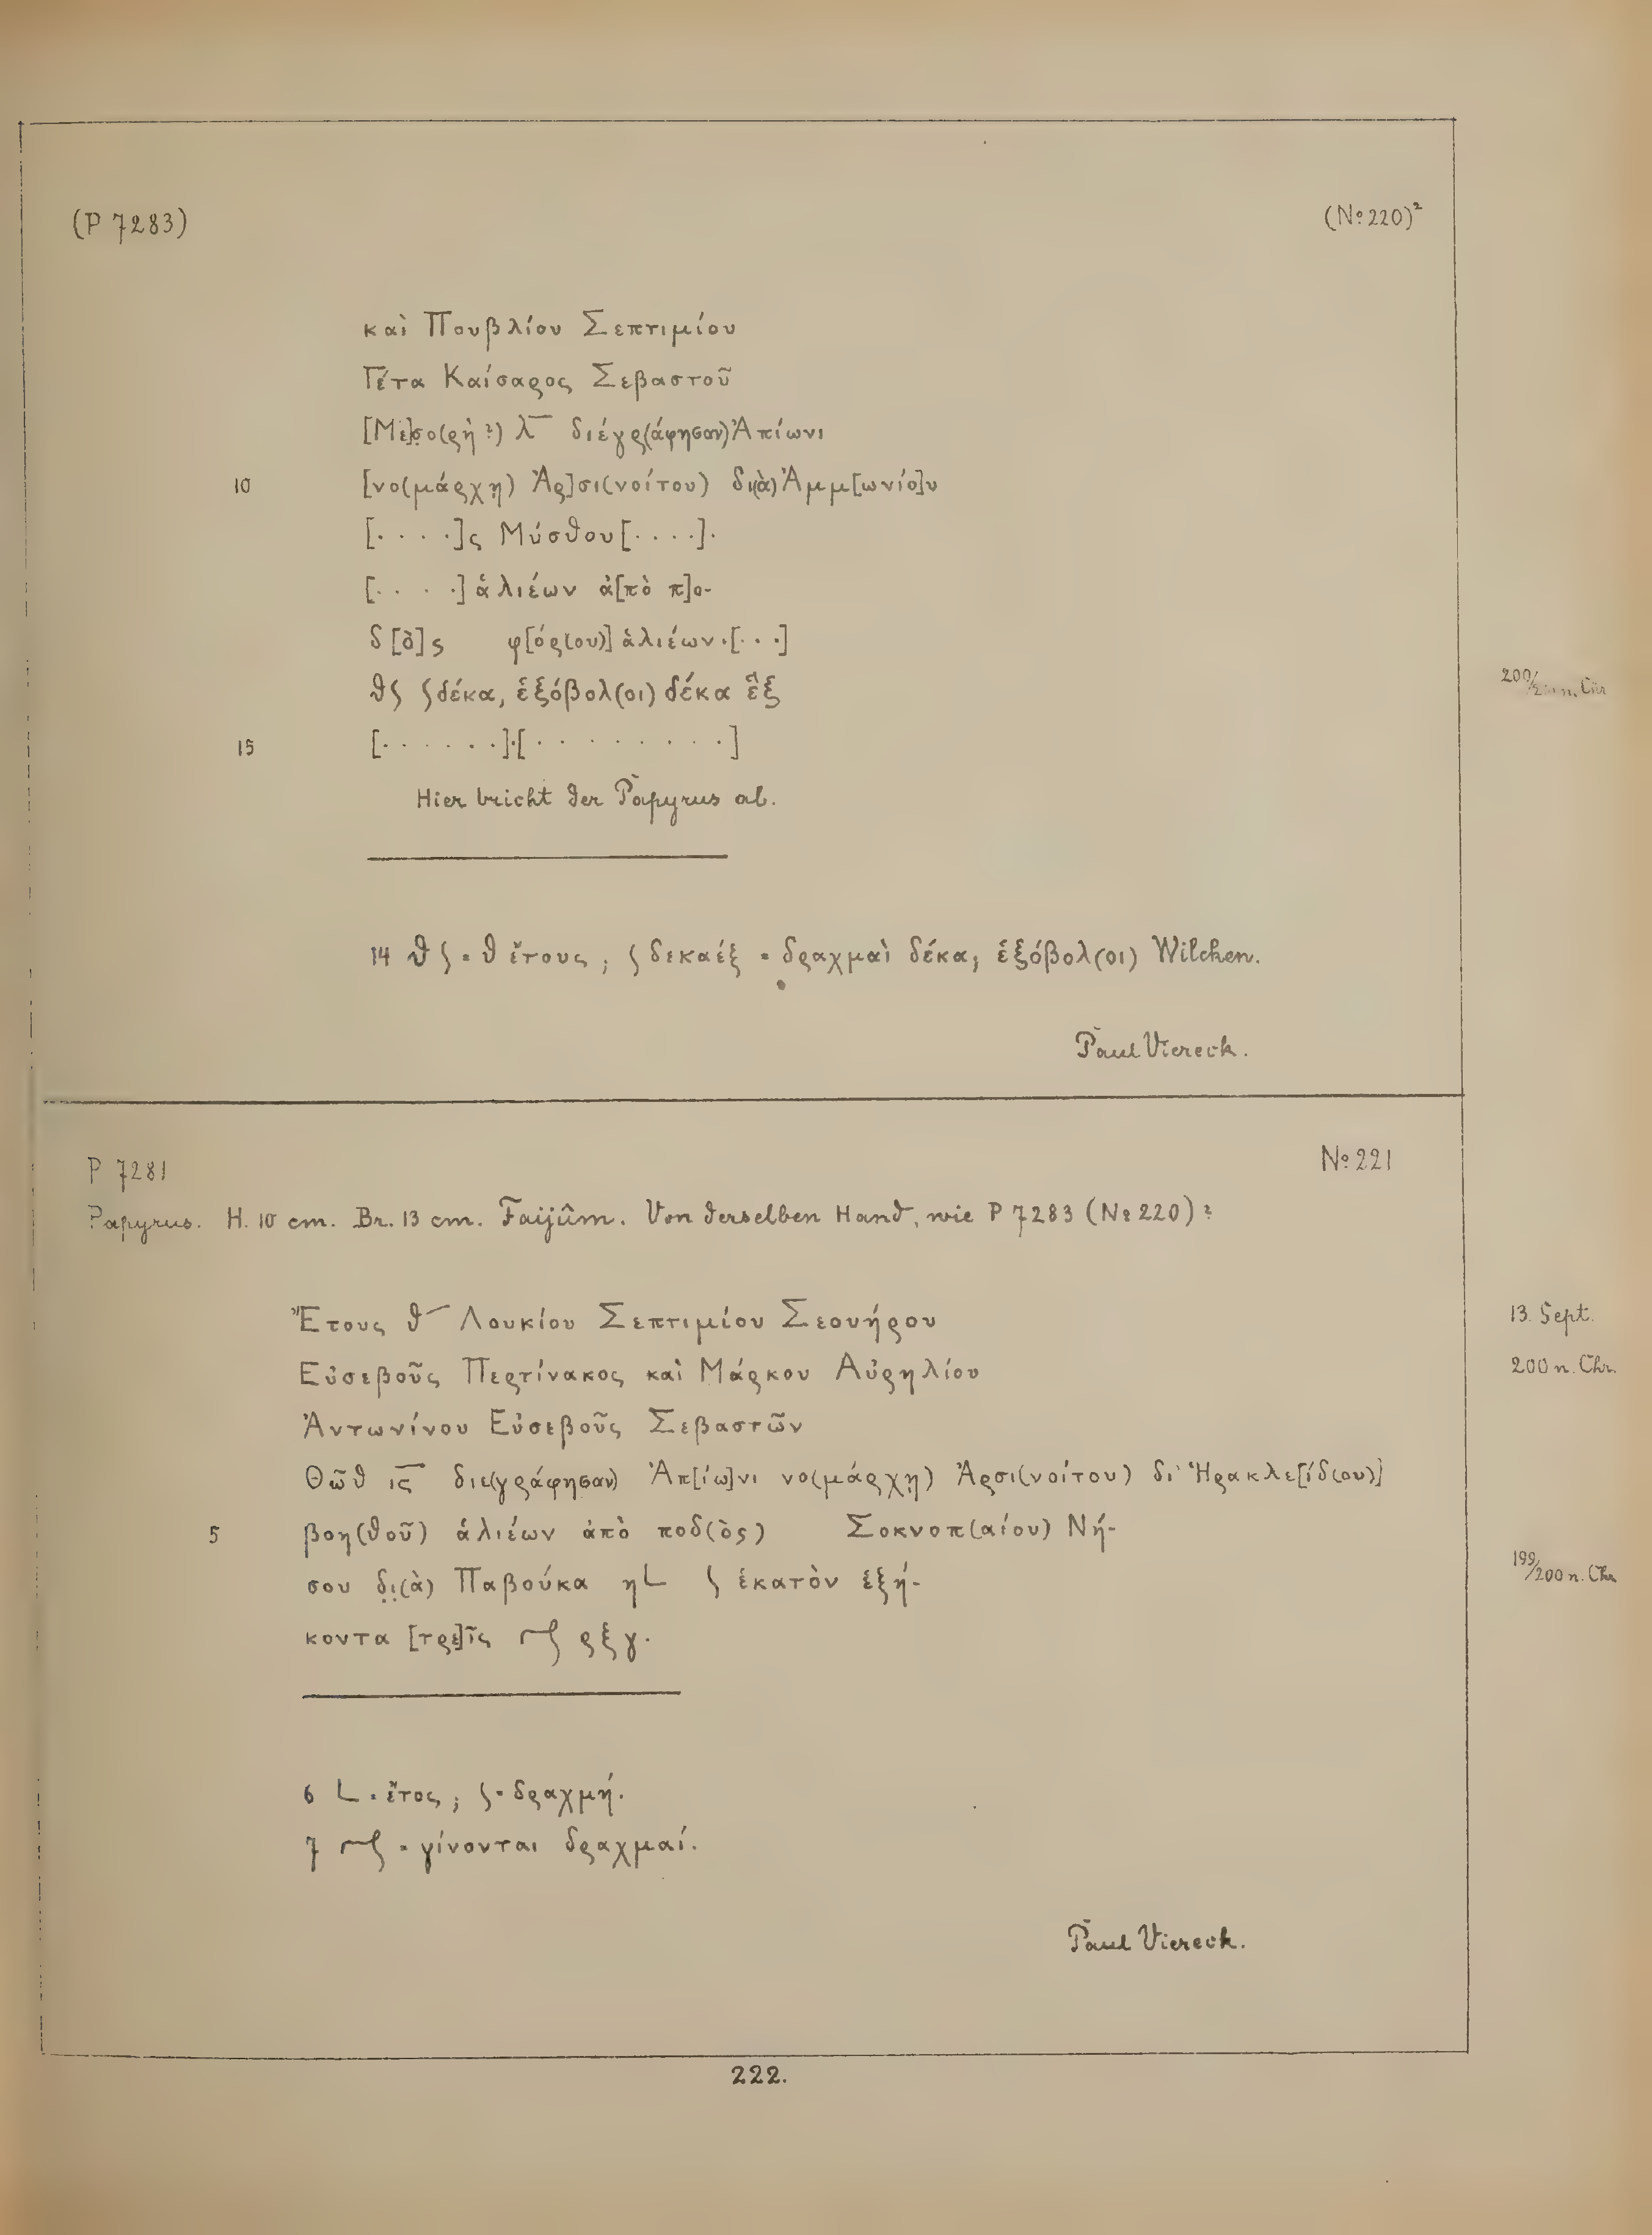 (P 7283) (No 220)²
καὶ Πουβλίου Σεπτιμίου
Γέτα Καίσαρος Σεβαστοῦ
[Με]σο(ρὴ?) λ̅ διέγρ(άφησαν) Ἀπίωνι
10 [νο(μάρχῃ) Ἀρ]σι(νοίτου) δι(ὰ) Ἀμμ[ωνίο]υ
[· · · ·]ς Μύσθου[· · · ·]·
[· · · ·] ἁλιέων ἀ[πὸ π]ο-
δ[ὸ]ς φ[όρ(ου)] ἁλιέων·[· · ·]
θʃ ʃ δέκα, ἑξόβολ(οι) δέκα ἓξ 200/
15 [· · · · · ·]·[· · · · · · · · ·]
Hier bricht der Papyrus ab.
14 θ ʃ = θ ἔτους; ʃ δεκαέξ = δραχμαὶ δέκα; ἑξόβολ(οι) Wilcken.
Paul Viereck.
P 7281 No 221
Papyrus. H. 10 cm. Br. 13 cm. Faijûm. Von derselben Hand, wie P 7283 (No 220)?
Ἔτους θ̅ Λουκίου Σεπτιμίου Σεουήρου 13. Sept.
Εὐσεβοῦς Περτίνακος καὶ Μάρκου Αὐρηλίου 200 n. Chr.
Ἀντωνίνου Εὐσεβοῦς Σεβαστῶν
Θῶθ ις̅ διε(γράφησαν) Ἀπ[ίω]νι νο(μάρχῃ) Ἀρσι(νοίτου) δι' Ἡρακλε[ίδ(ου)]
5 βοη(θοῦ) ἁλιέων ἀπὸ ποδ(ὸς) Σοκνοπ(αίου) Νή-
σου δ̣ι̣(ὰ) Παβούκα ηL ʃ ἑκατὸν ἑξή- 199/200 n. Chr
κοντα [τρε]ῖς ⌐ʃ ρξγ.
6 L = ἔτος; ʃ = δραχμή.
7 ⌐ʃ = γίνονται δραχμαί.
Paul Viereck.
222.